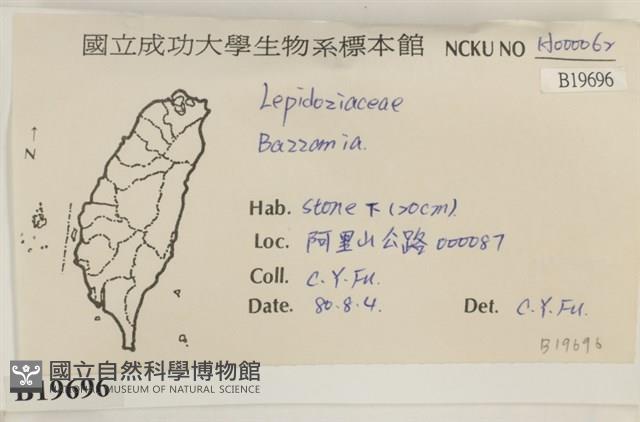 國立成功大學生物系標本館 NCKU NO H000062
B19696
Lepidoziaceae
Bazzania.
N
Hab. stone下 (20cm)
Loc. 阿里山公路 000087
Coll. C.Y.Fu.
Date. 80.8.4. Det. C.Y.Fu.
B19696
國立自然科學博物館
NATIONAL MUSEUM OF NATURAL SCIENCE
B19696